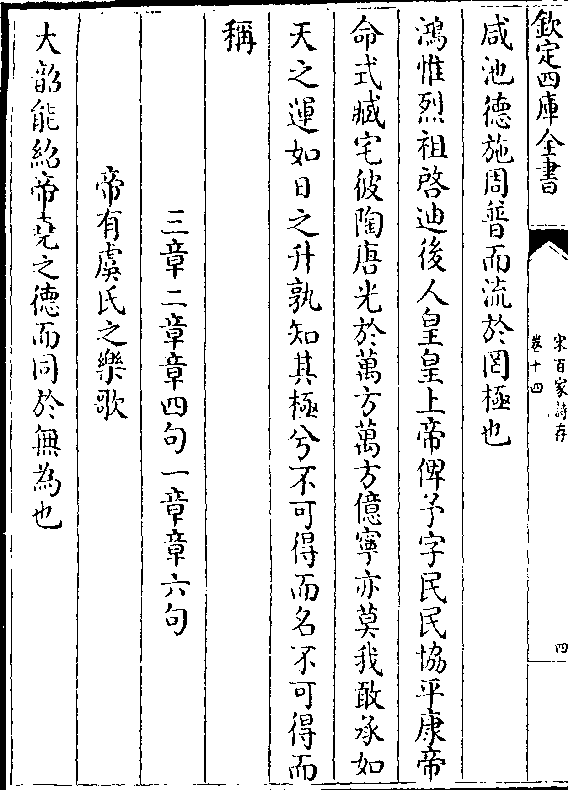 欽定四庫全書
宋百家詩存
卷十四
四
咸池德施周普而流於罔極也
鴻惟烈祖啓迪後人皇皇上帝俾予字民民協平康帝
命式臧宅彼陶唐光於萬方萬方億寧亦莫我敢承如
天之運如日之升孰知其極兮不可得而名不可得而
稱
三章二章章四句一章章六句
帝有虞氏之樂歌
大韶能紹帝堯之德而同於無為也